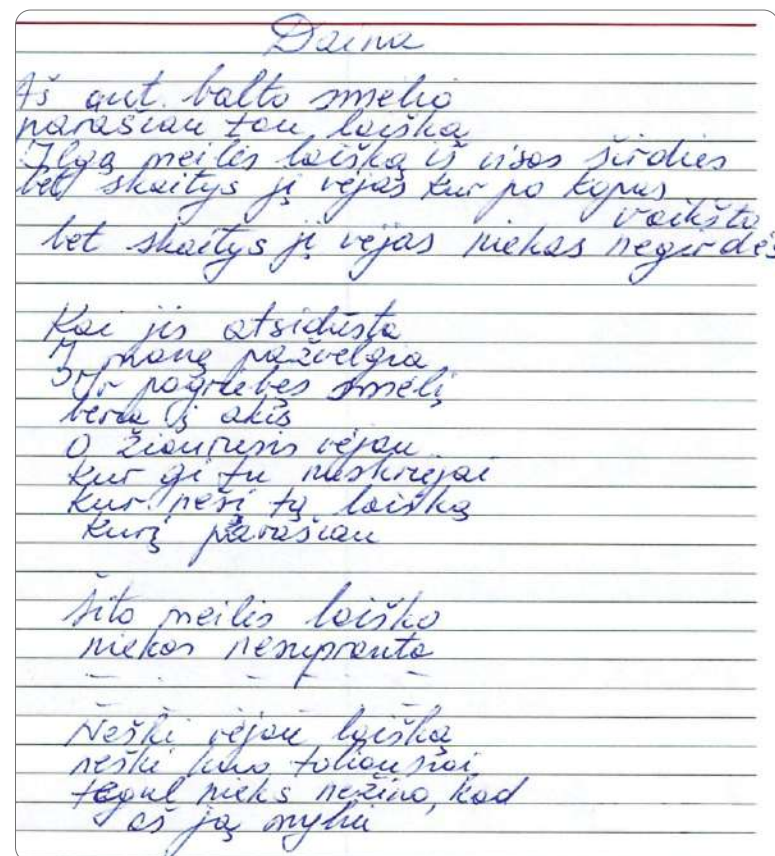 Daina
Aš ant balto smėlio
parašiau tau laišką
Ilgą meilės laišką iš visos širdies
bet skaitys jį vėjas kur po kopas
vaikšto
bet skaitys jį vėjas niekas negirdės
Kai jis atsidūsta
Į mane pažvelgia
Ir pagriebęs smėlį
beria į akis
O žiaurusis vėjau
kur gi tu nuskriejai
kur neši tą laišką
kurį parašiau
šito meilės laiško
niekas nesupranta
- - - - -
Neški vėjau laišką
neški kuo toliausiai
tegul nieks nežino, kad
aš ją myliu